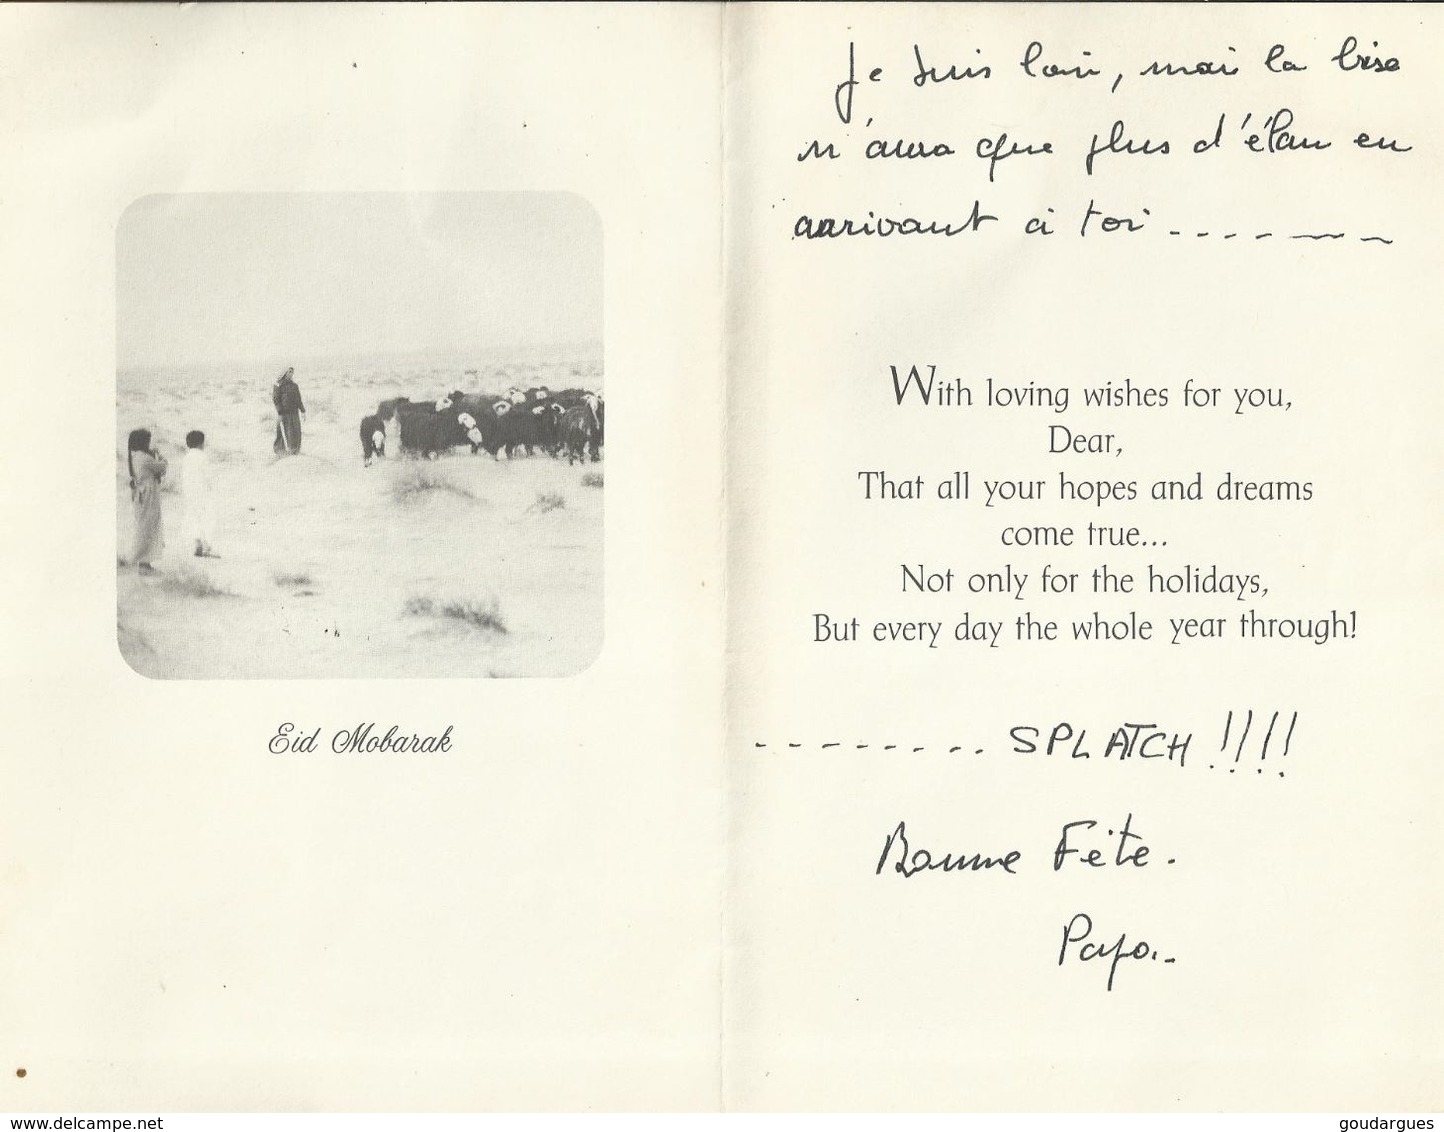 Eid Mobarak
Je suis loin, mais la bise
n'aura que plus d'élan en
arrivant à toi - - - - - - -
With loving wishes for you,
Dear,
That all your hopes and dreams
come true...
Not only for the holidays,
But every day the whole year through!
- - - - - - - - - SPLATCH !!!!
Bonne Fête.
Papa.
www.delcampe.net
goudargues